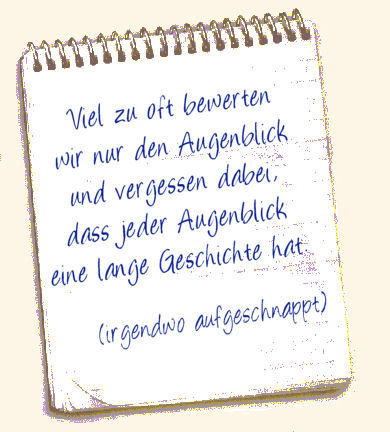 Viel zu oft bewerten
wir nur den Augenblick
und vergessen dabei,
dass jeder Augenblick
eine lange Geschichte hat.
(irgendwo aufgeschnappt)